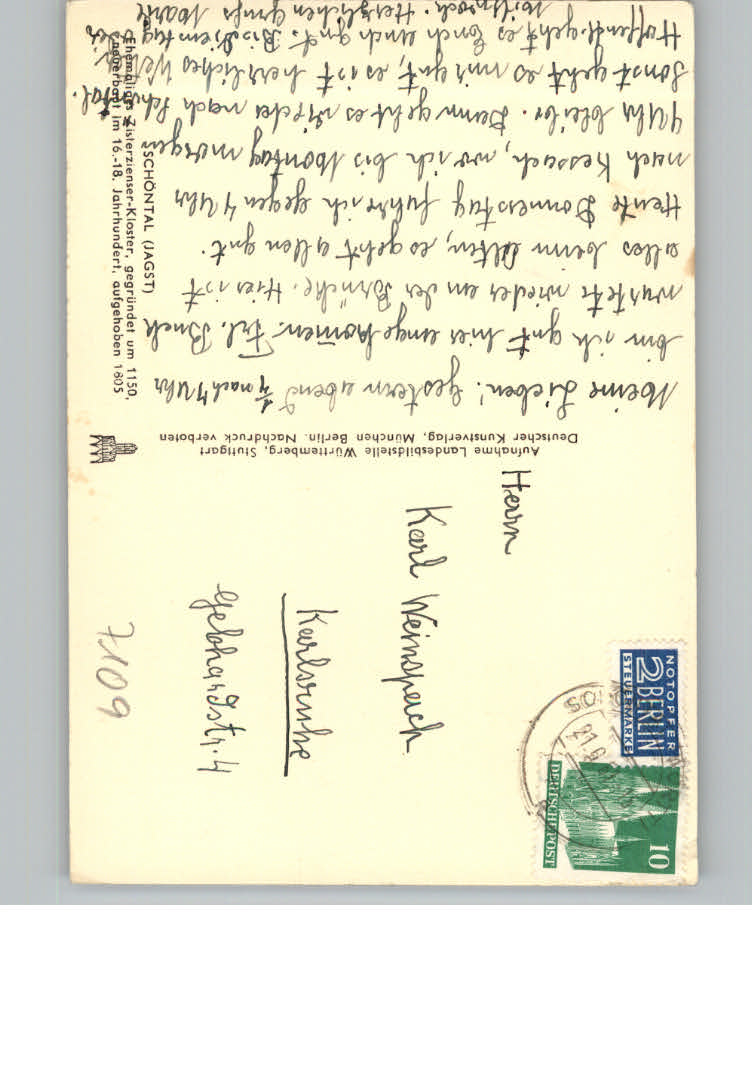 Meine Lieben! Gestern abend 1/4 nach 7 Uhr
bin ich gut hier angekommen. Frl. Buck
wartete wieder an der Brücke. Hier ist
alles beim Alten, es geht allen gut.
Heute Donnerstag fahre ich gegen 4 Uhr
nach Kessach, wo ich bis Montag morgen
4 Uhr bleibe. Dann geht es wieder nach Schöntal.
Sonst geht es mir gut, es ist herrliches Wetter
Hoffentl. geht es Euch auch gut. Bis Dienstag
Mittwoch. Herzlichen Gruß
SCHÖNTAL (JAGST)
Ehemaliges Zisterzienser-Kloster, gegründet um 1150,
neuerbaut im 16.-18. Jahrhundert, aufgehoben 1805
Aufnahme Landesbildstelle Württemberg, Stuttgart
Deutscher Kunstverlag, München Berlin. Nachdruck verboten
Herrn
Karl Weinspach
Karlsruhe
Gebhardstr. 4
7109
NOTOPFER
2 BERLIN
STEUERMARKE
DEUTSCHE POST
10